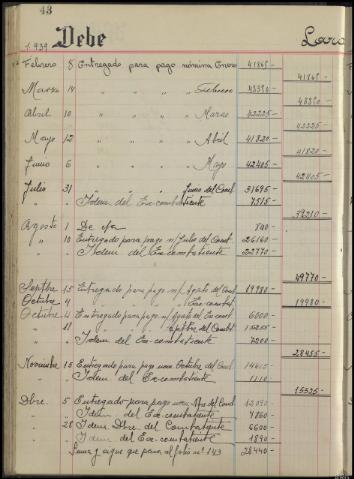 43
1.939 Debe
Febrero 8 Entregado para pago nómina Enero 41865-
41865-
Marzo 14 " " " " Febrero
Abril 10 " " " " Marzo 42225-
42225-
Mayo 12 " " " " Abril 41820-
41820-
Junio 6 " " " " Mayo 42405-
42405-
Julio 31 " " " Junio del Comb 31695-
" Idem del Ex-combatiente 7515-
Agosto 1 De
" 10 Entregado para pago n/ Julio del Comt 26160-
" Idem del Ex combatiente 22770-
49770-
Sepbre 15 Entregado para pago n/ Agsto del Comt 19980-
Octubre 4 " " " " Exe-combat
19980-
Octubre 4 Entregado para pago n/ Agsto del Ex comt 6000-
" 11 " " " Sepbre del Combt
" Idem del Ex-combatiente 7200-
28455-
Noviembre 15 Entregado para pago nom Octubre del Comb
" Idem del Excombatiente 1110-
15525-
Dbre. 5 Entregado para pago nom Nbre del Comb
" Idem del Ex-combatiente
" 28 Idem Dbre. del Combatiente 6600-
" Idem del Ex-combatiente 1890-
Suma y sigue que para al folio nº 143 28440-